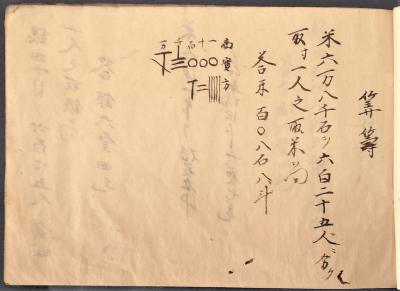 筭籌
米六万八千石ヲ六百二十五人ニ分ケ
取寸一人之取米ヲ問
答米百〇八石八斗
商實方
一十百千万
〇〇〇